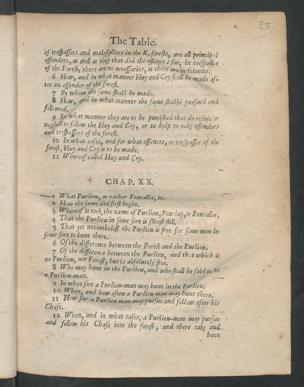 25
The Table.
of trespassers and malefactors in the K. forests, are all principal
offenders, as well as they that did the offence: for, in trespasses
of the Forest, there are no accessaries, as there are in felonies.
6 How, and in what manner Huy and Cry shall be made af-
ter an offender of the forest.
7 By whom the same shall be made.
8 How, and in what manner the same shalbe pursued and
followed.
9 In what manner they are to be punished that do refuse or
neglect to follow the Huy and Cry, or to help to take offenders
and trespassers of the forest.
10 In what cases, and for what offences, or trespasses of the
forest, Huy and Cry is to be made.
11 Whereof called Huy and Cry.
CHAP. XX.
1 What Purlieu, or rather Pourallee, is.
2 How the same did first begin.
3 Whereof it took the name of Purlieu, Pourlay, or Pourallee.
4 That the Purlieu in some sort is forest still.
5 That yet nevertheless the Purlieu is free for some men in
some sort to hunt there.
6 Of the difference between the Forest and the Purlieu.
7 Of the difference between the Purlieu, and that which is
no Purlieu, nor Forest, but is absolutely free.
8 Who may hunt in the Purlieu, and who shall be said to be
a Purlieu-man.
9 In what sort a Purlieu-man may hunt in the Purlieu.
10 When, and how often a Purlieu man may hunt there.
11 How far a Purlieu man may pursue and follow after his
Chase.
12 When, and in what cases, a Purlieu-man may pursue
and follow his Chase into the forest, and there take and
have